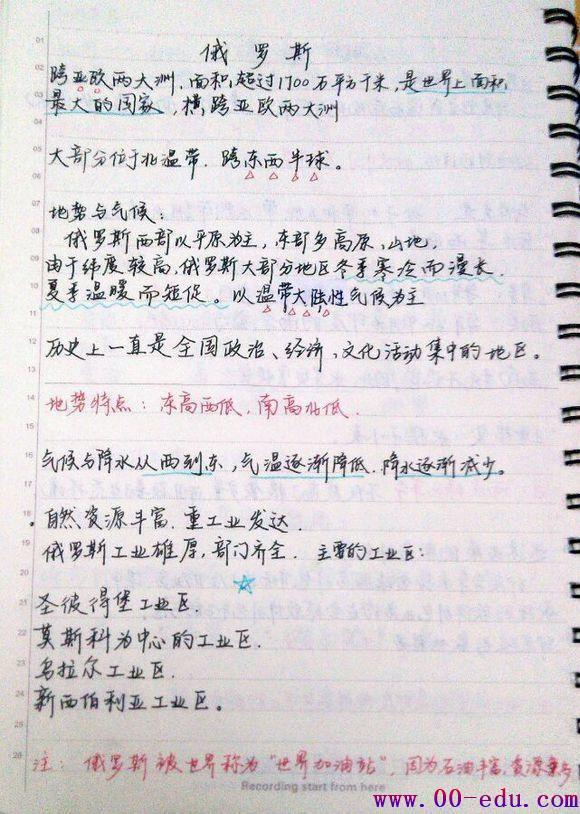 俄罗斯
跨亚欧两大洲,面积超过1700万平方千米,是世界上面积
最大的国家,横跨亚欧两大洲
大部分位于北温带.跨东西半球。
地势与气候:
俄罗斯西部以平原为主,东部多高原,山地,
由于纬度较高,俄罗斯大部分地区冬季寒冷而漫长.
夏季温暖而短促。以温带大陆性气候为主
历史上一直是全国政治、经济,文化活动集中的地区。
地势特点:东高西低,南高北低.
气候与降水从西到东,气温逐渐降低.降水逐渐减少。
自然资源丰富.重工业发达.
俄罗斯工业雄厚,部门齐全. 主要的工业区:
圣彼得堡工业区
莫斯科为中心的工业区.
乌拉尔工业区.
新西伯利亚工业区。
注: 俄罗斯被世界称为"世界加油站",因为石油丰富,资源
Recording start from here
www.00-edu.com